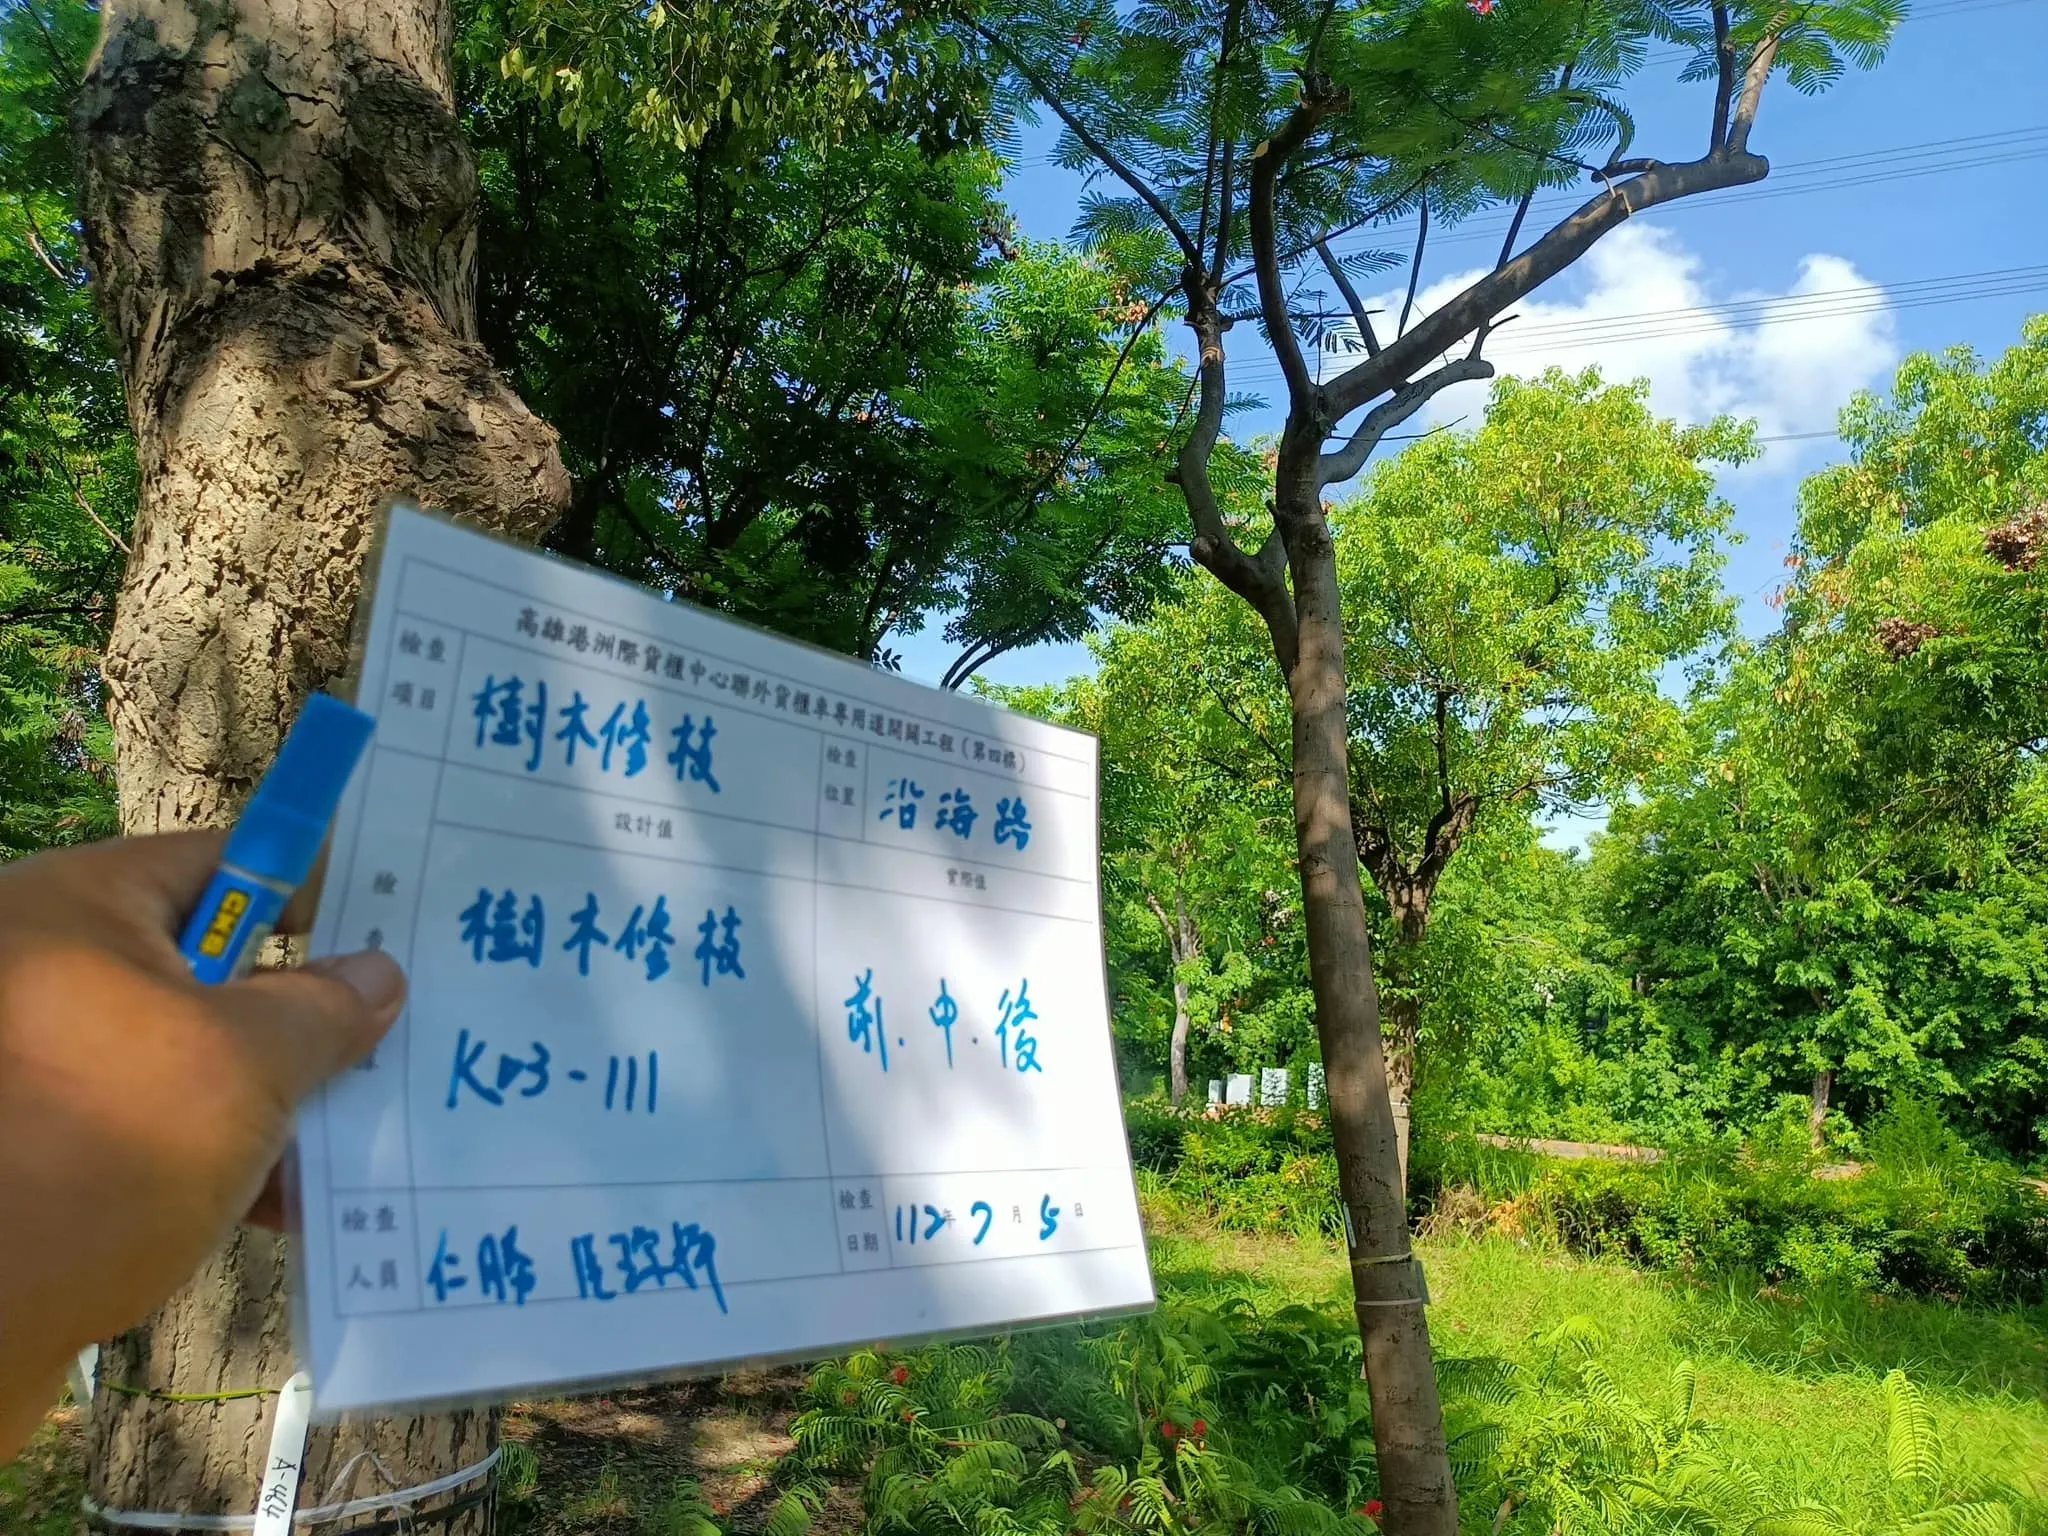 高雄港洲際貨櫃中心聯外貨櫃車專用道開闢工程（第四標）
檢查項目
樹木修枝
檢查位置
沿海路
設計值
實際值
檢查
樹木修枝
K03-111
前.中.後
檢查人員
仁勝
檢查日期
112年7月5日
A-464